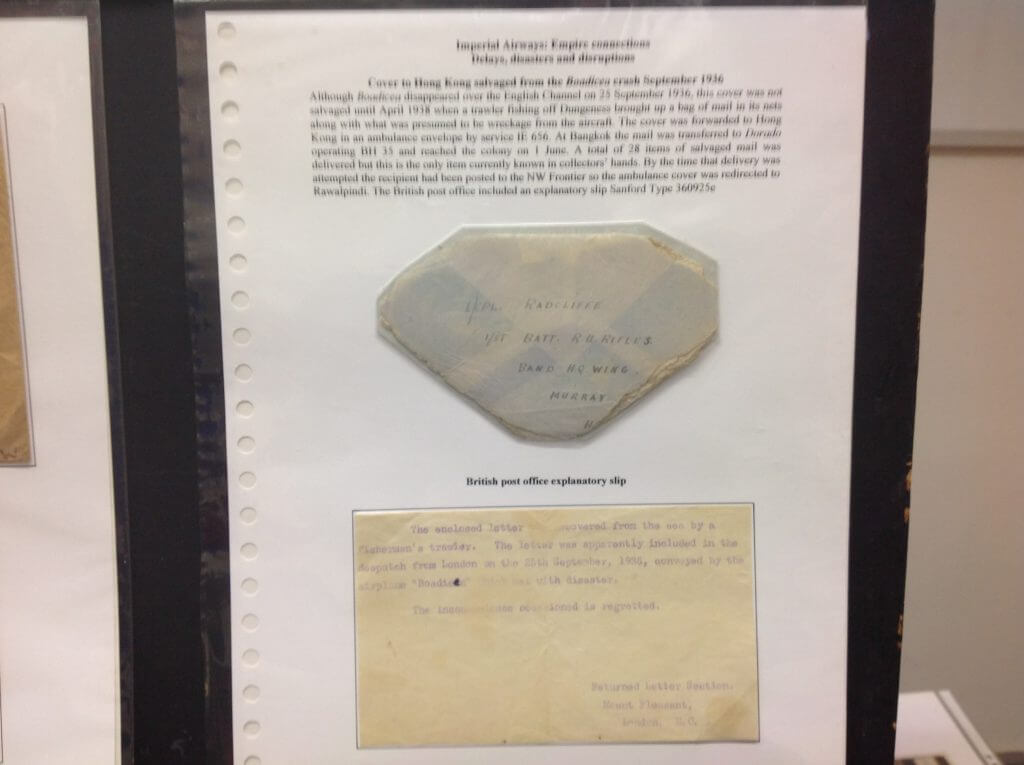 Imperial Airways: Empire connections
Delays, disasters and disruptions
Cover to Hong Kong salvaged from the Boadicea crash September 1936
Although Boadicea disappeared over the English Channel on 25 September 1936, this cover was not
salvaged until April 1938 when a trawler fishing off Dungeness brought up a bag of mail in its nets
along with what was presumed to be wreckage from the aircraft. The cover was forwarded to Hong
Kong in an ambulance envelope by service IE 656. At Bangkok the mail was transferred to Dorado
operating BH 35 and reached the colony on 1 June. A total of 28 items of salvaged mail was
delivered but this is the only item currently known in collectors' hands. By the time that delivery was
attempted the recipient had been posted to the NW Frontier so the ambulance cover was redirected to
Rawalpindi. The British post office included an explanatory slip Sanford Type 360925e
L/CPL. RADCLIFFE
1/ST BATT. R.U. RIFLES.
BAND HQ WING.
MURRAY
H
British post office explanatory slip
The enclosed letter overed from the sea by a
fisherman's trawler. The letter was apparently included in the
despatch from London on the 25th September, 1936, conveyed by the
airplane "Boadicea" with disaster.
The is regretted.
Returned Letter Section.
Mount Pleasant,
London, E.C.